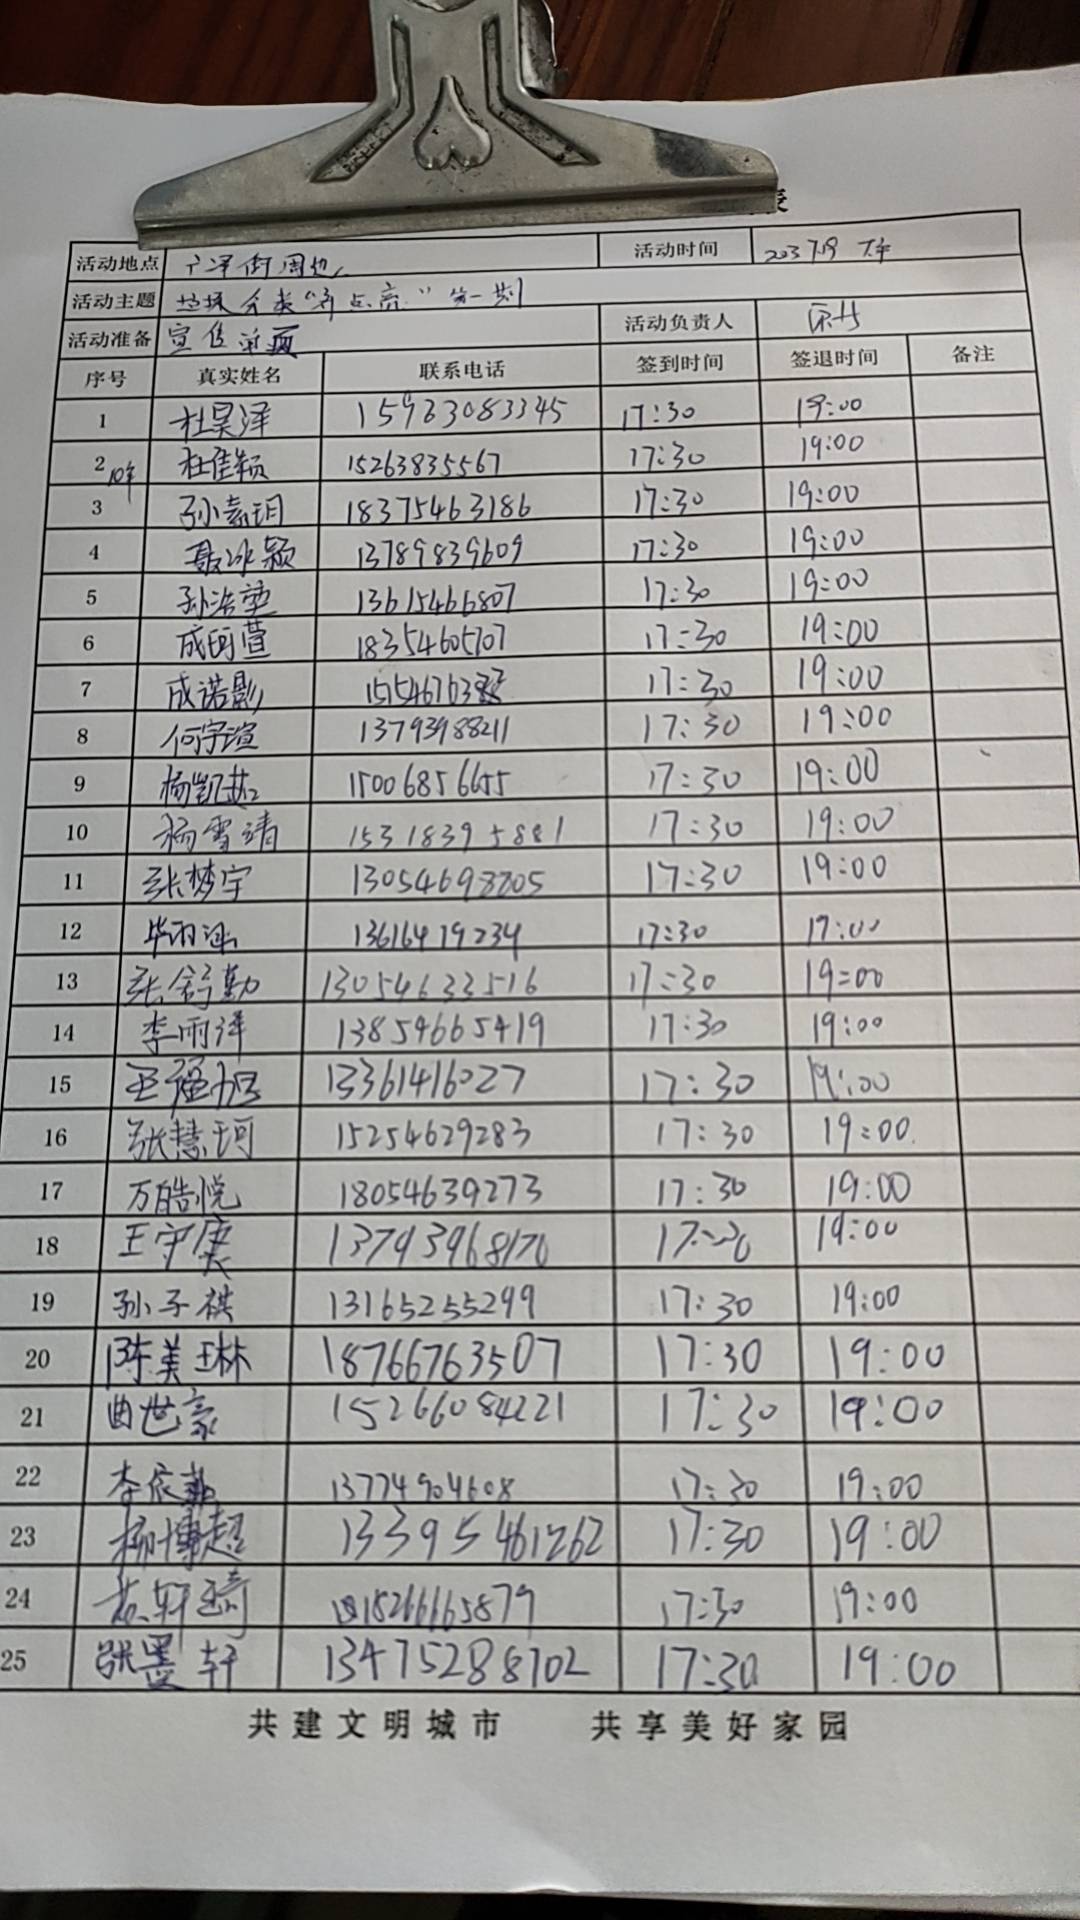 表
活动地点 广泽街周边 活动时间 203 7.19
活动主题 垃圾分类
活动准备 宣传单页 活动负责人
序号 真实姓名 联系电话 签到时间 签退时间 备注
1 杜昊泽 15923083345 17:30 19:00
2 杜佳颖 15263835567 17:30 19:00
3 孙嘉玥 18375463186 17:30 19:00
4 聂冰颖 13789839609 17:30 19:00
5 孙浩 13615466807 17:30 19:00
6 成珂萱 18354605707 17:30 19:00
7 成诺 17:30 19:00
8 何宇瑄 13793988211 17:30 19:00
9 杨凯茹 15006856655 17:30 19:00
10 杨雪靖 15318395881 17:30 19:00
11 张梦宇 13054698805 17:30 19:00
12 毕雨涵 13616419234 17:30 17:00
13 张舒勤 13054633516 17:30 19:00
14 李雨泽 13854665419 17:30 19:00
15 王 13361416027 17:30 19:00
16 张慧珂 15254629283 17:30 19:00
17 万皓悦 18054639273 17:30 19:00
18 王宇 13793968170 17:30 19:00
19 孙子祺 13165255299 17:30 19:00
20 陈美琳 18766763507 17:30 19:00
21 曲世豪 15266084221 17:30 19:00
22 李依 13774904608 17:30 19:00
23 杨博超 13395461262 17:30 19:00
24 轩 18266665879 17:30 19:00
25 张墨轩 13475288702 17:30 19:00
共建文明城市 共享美好家园